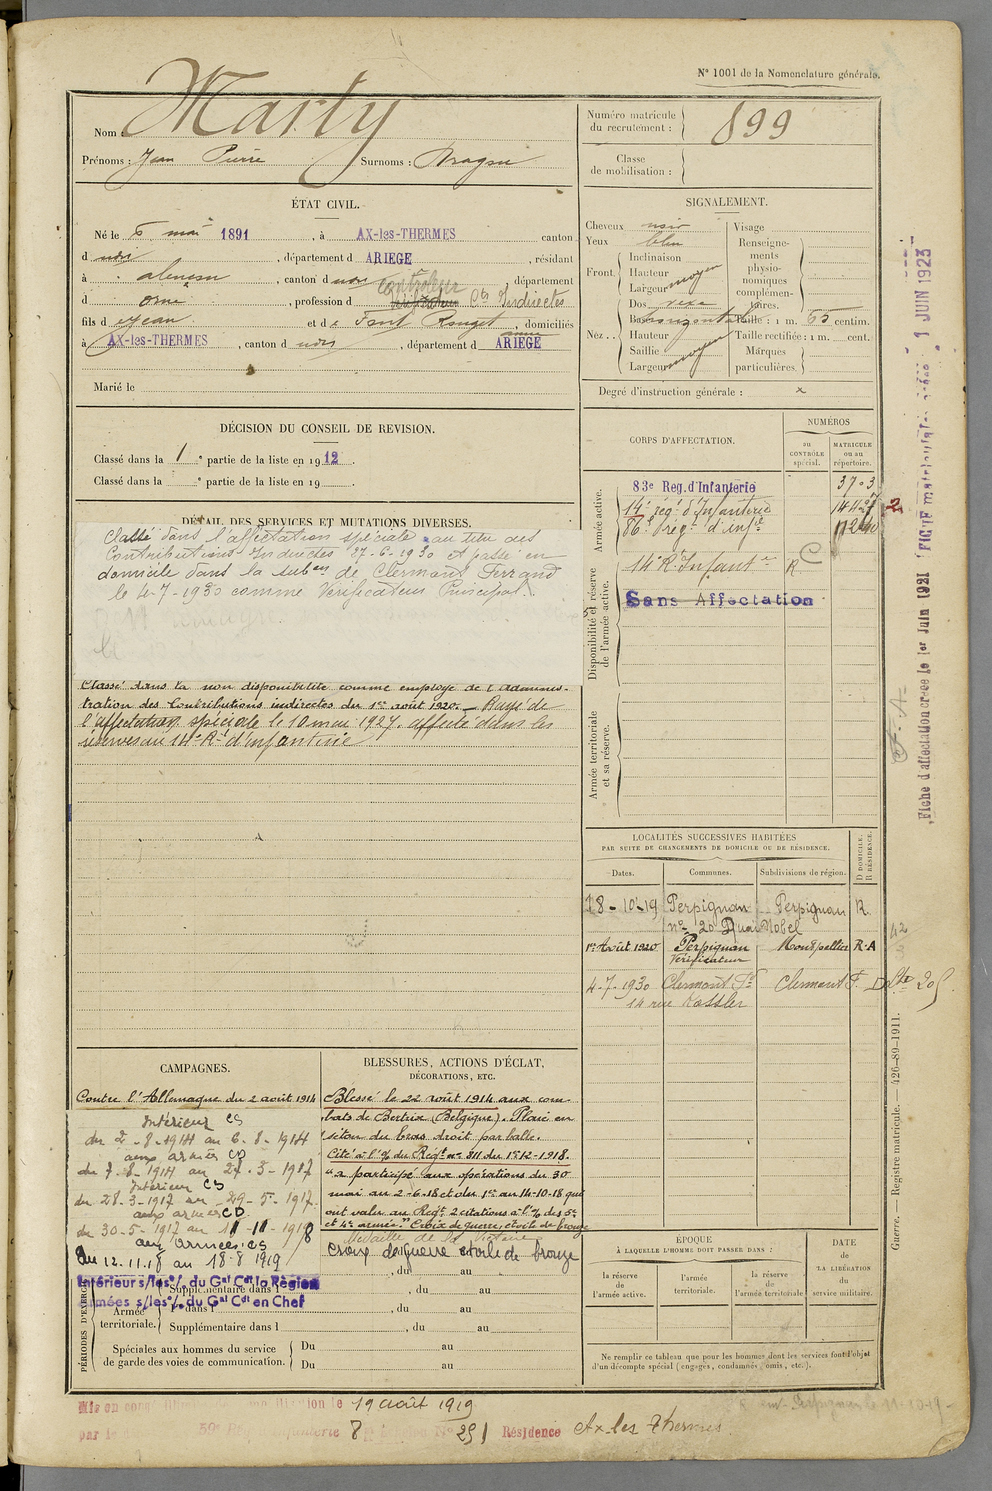 N° 1001 de la Nomenclature générale.
Nom : Marty
Prénoms : Jean Pierre Surnoms :
Numéro matricule du recrutement : 899
Classe de mobilisation :
ÉTAT CIVIL.
Né le 6 mai 1891, à AX-les-THERMES canton
d udit, département d ARIEGE, résidant
à alençon, canton d udit, département
d orne, profession d Contrôleur Cts Indirectes
fils d e Jean et d e Font Rouzet anne, domiciliés
à AX-les-THERMES, canton d udit, département d ARIEGE
Marié le
SIGNALEMENT.
Cheveux noir
Yeux bleu
Front. Inclinaison
Hauteur moyen
Largeur
Nez. Dos vexe
Base horizontal
Hauteur
Saillie moyen
Largeur
Visage
Renseignements physionomiques complémentaires.
Taille : 1 m. 65 centim.
Taille rectifiée : 1 m. cent.
Marques particulières.
Degré d'instruction générale :
DÉCISION DU CONSEIL DE REVISION.
Classé dans la 1e partie de la liste en 1912.
Classé dans la e partie de la liste en 19 .
CORPS D'AFFECTATION.
NUMÉROS
au CONTRÔLE spécial.
MATRICULE ou au répertoire.
Armée active.
83e Reg. d'Infanterie 3703
14e régt d'Infanterie
86e régt d'infie
Disponibilité et réserve de l'armée active.
14 R. Infante R
Sans Affectation
Armée territoriale et sa réserve.
DÉTAIL DES SERVICES ET MUTATIONS DIVERSES.
Classé dans l'affectation spéciale au titre des
Contributions Indirectes 27-6-1930 et passé en
domicile dans la subon de Clermont Ferrand
le 4-7-1930 comme Vérificateur Principal.
Classé dans la non disponibilité comme employé de l'adminis-
tration des Contributions indirectes du 1er août 1920. Rayé de
l'affectation spéciale le 10 mai 1927. affecté dans les
réserves au 14e Rt d'infanterie
LOCALITÉS SUCCESSIVES HABITÉES
PAR SUITE DE CHANGEMENTS DE DOMICILE OU DE RÉSIDENCE.
Dates. Communes. Subdivisions de région. D DOMICILE. R RÉSIDENCE.
28-10-19 Perpignan Perpignan R.
n° 20 Quai Nobel
1er Août 1920 Perpignan Montpellier R-A
Vérificateur
4-7-1930 Clermont Fd Clermont F. D
14 rue Kessler
CAMPAGNES.
Contre l'Allemagne du 2 août 1914
Intérieur CS
du 2-8-1914 au 6-8-1914
aux armées CD
du 7-8-1914 au 27-3-1917
Intérieur CS
du 28-3-1917 au 29-5-1917
aux armées CD
du 30-5-1917 au 11-11-1918
aux armées CS
du 12.11.18 au 18-8 1919
Intérieur s/les o/. du Gal Cdt la Région
Armées s/les o/. du Gal Cdt en Chef
BLESSURES, ACTIONS D'ÉCLAT,
DÉCORATIONS, ETC.
Blessé le 22 août 1914 aux com-
bats de Bertrix (Belgique). Plaie en
séton du bras droit par balle.
Cité à l'O/ du Régt n° 311 du 1er-12-1918.
"a participé aux opérations du 30
mai au 2-6-18 et du 1er au 14-10-18 qui
ont valu au Régt 2 citations à l'O/ des 5e
et 4e armées." Croix de guerre, étoile de bronze
Médaille de la Victoire
croix de guerre etoile de bronze
PÉRIODES D'EXERCICES
Supplémentaire dans l , du au
Armée territoriale.
dans l , du au
Supplémentaire dans l , du au
Spéciales aux hommes du service de garde des voies de communication.
Du au
Du au
ÉPOQUE
À LAQUELLE L'HOMME DOIT PASSER DANS :
la réserve de l'armée active.
l'armée territoriale.
la réserve de l'armée territoriale
DATE de LA LIBÉRATION du service militaire.
Ne remplir ce tableau que pour les hommes dont les services font l'objet
d'un décompte spécial (engagés, condamnés, omis, etc.).
Mis en congé illimité de démobilisation le 19 août 1919
par le dépôt 59e Régt Infanterie N° 291 Résidence Ax les Thermes
Fiche d'affectation créée le 1er Juin 1921
1 JUIN 1923
Guerre. — Registre matricule. — 426-89-1911.